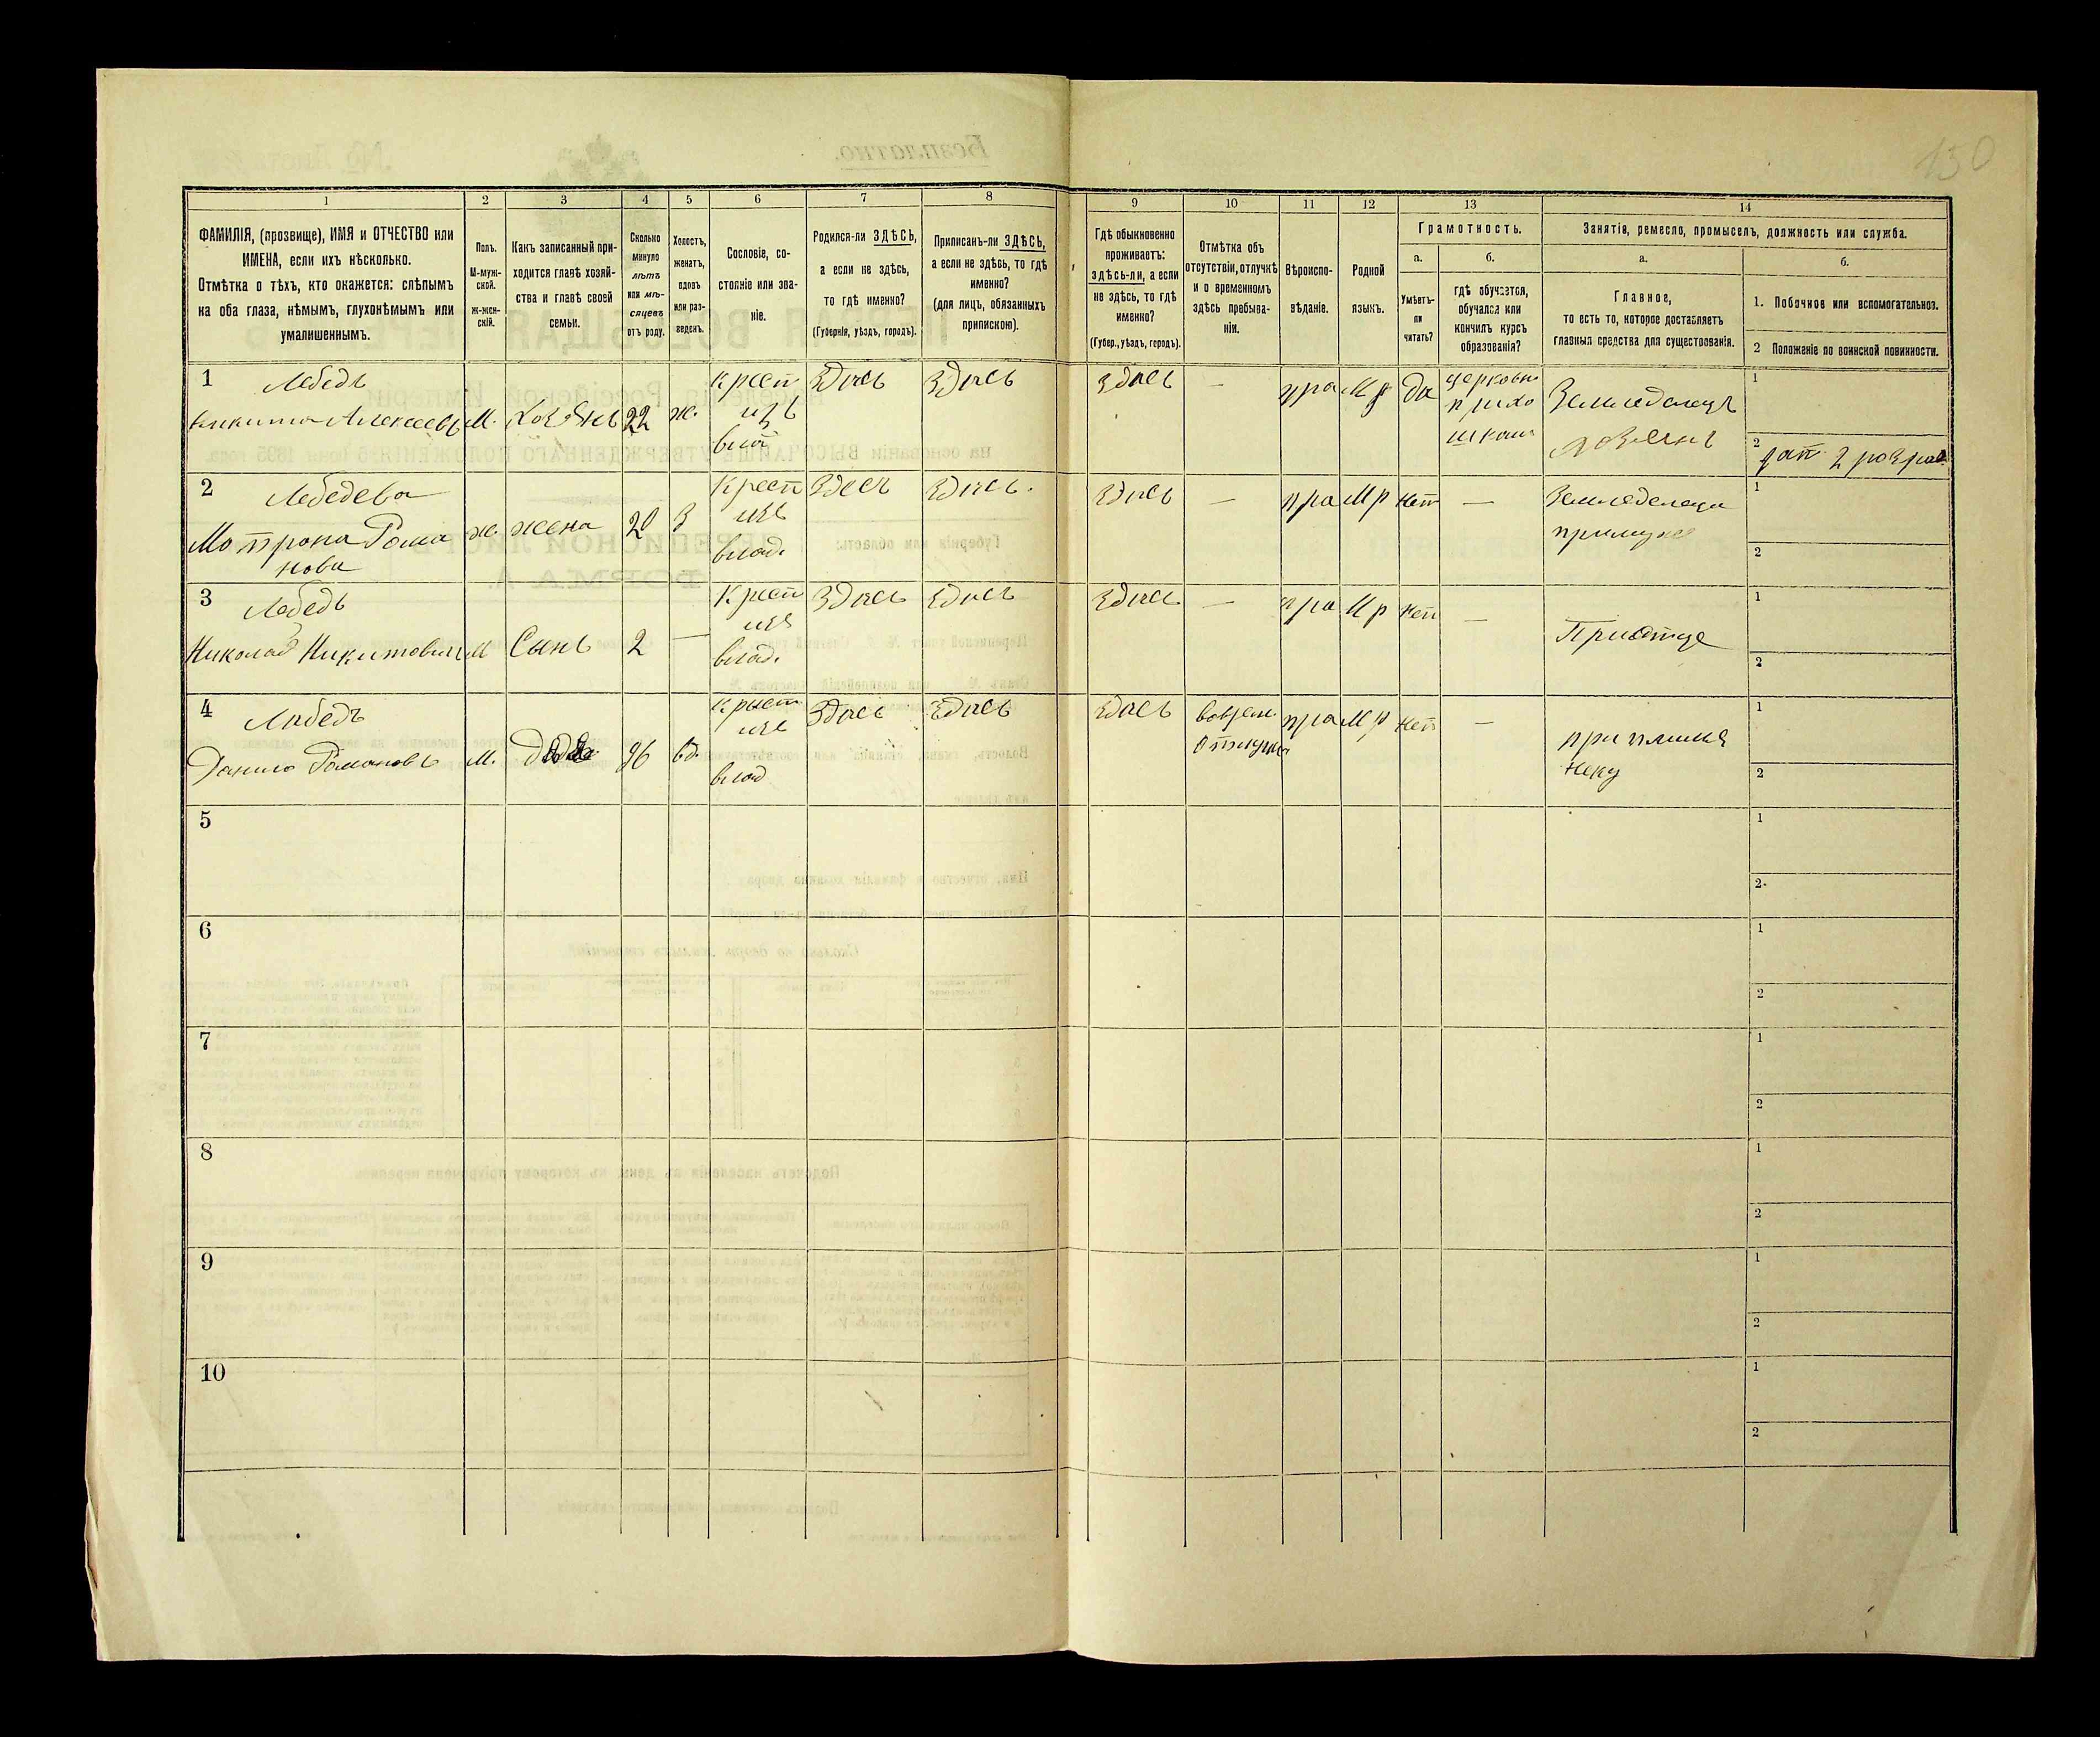 150
1 2 3 4 5 6 7 8 9 10 11 12 13 14
ФАМИЛІЯ, (прозвище), ИМЯ и ОТЧЕСТВО или
ИМЕНА, если ихъ нѣсколько.
Отмѣтка о тѣхъ, кто окажется: слѣпымъ
на оба глаза, нѣмымъ, глухонѣмымъ или
умалишеннымъ.
Полъ.
М-муж-
ской.
Ж-жен-
скій.
Какъ записанный при-
ходится главѣ хозяй-
ства и главѣ своей
семьи.
Сколько
минуло
лѣтъ
или мѣ-
сяцевъ
отъ роду.
Холостъ,
женатъ,
вдовъ
или раз-
веденъ.
Сословіе, со-
стояніе или зва-
ніе.
Родился-ли ЗДѢСЬ,
а если не здѣсь,
то гдѣ именно?
(Губернія, уѣздъ, городъ).
Приписанъ-ли ЗДѢСЬ,
а если не здѣсь, то гдѣ
именно?
(для лицъ, обязанныхъ
припискою).
Гдѣ обыкновенно
проживаетъ:
здѣсь-ли, а если
не здѣсь, то гдѣ
именно?
(Губер., уѣздъ, городъ).
Отмѣтка объ
отсутствіи, отлучкѣ
и о временномъ
здѣсь пребыва-
ніи.
Вѣроиспо-
вѣданіе.
Родной
языкъ.
Грамотность.
а.
Умѣетъ-
ли
читать?
б.
гдѣ обучается,
обучался или
кончилъ курсъ
образованія?
Занятія, ремесло, промыселъ, должность или служба.
а.
Главное,
то есть то, которое доставляетъ
главныя средства для существованія.
б.
1. Побочное или вспомогательное.
2 Положеніе по воинской повинности.
1 Лебедь
Никита Алексеевъ М. Хозяинъ 22 ж.
Крест
изъ
влад
Здись Здись Здись — пра М р да
церковн
прихо
школа
Земледелецъ
хозяинъ
1
2 рат 2 розряд
2 Лебедева
Мотрона Рома
нова
ж. жена 20 З
Крест
изъ
влад.
Здесь Здись. Здись — пра М р нет —
Земледелеци
примуже
1
2
3 Лебедь
Николай Никитович М Сынъ 2 —
Крест
изъ
влад.
Здись Здись Здись — пра М р нет —
Приотце
1
2
4 Лебедь
Данило Романовъ М. 96 вд.
Крест
изъ
влад
Здись Здись Здись
отлучке
пра М р нет —
при племя
неку
1
2
5
1
2
6
1
2
7
1
2
8
1
2
9
1
2
10
1
2